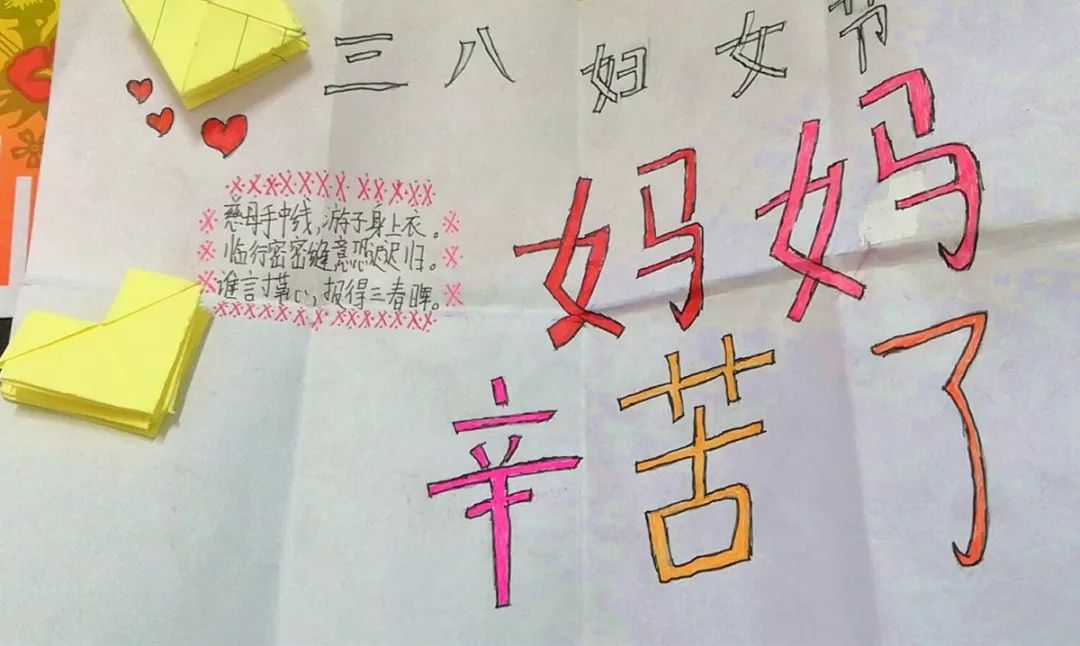 三八妇女节
慈母手中线,游子身上衣。
临行密密缝意恐迟迟归。
谁言寸草心,报得三春晖。
妈妈
辛苦了